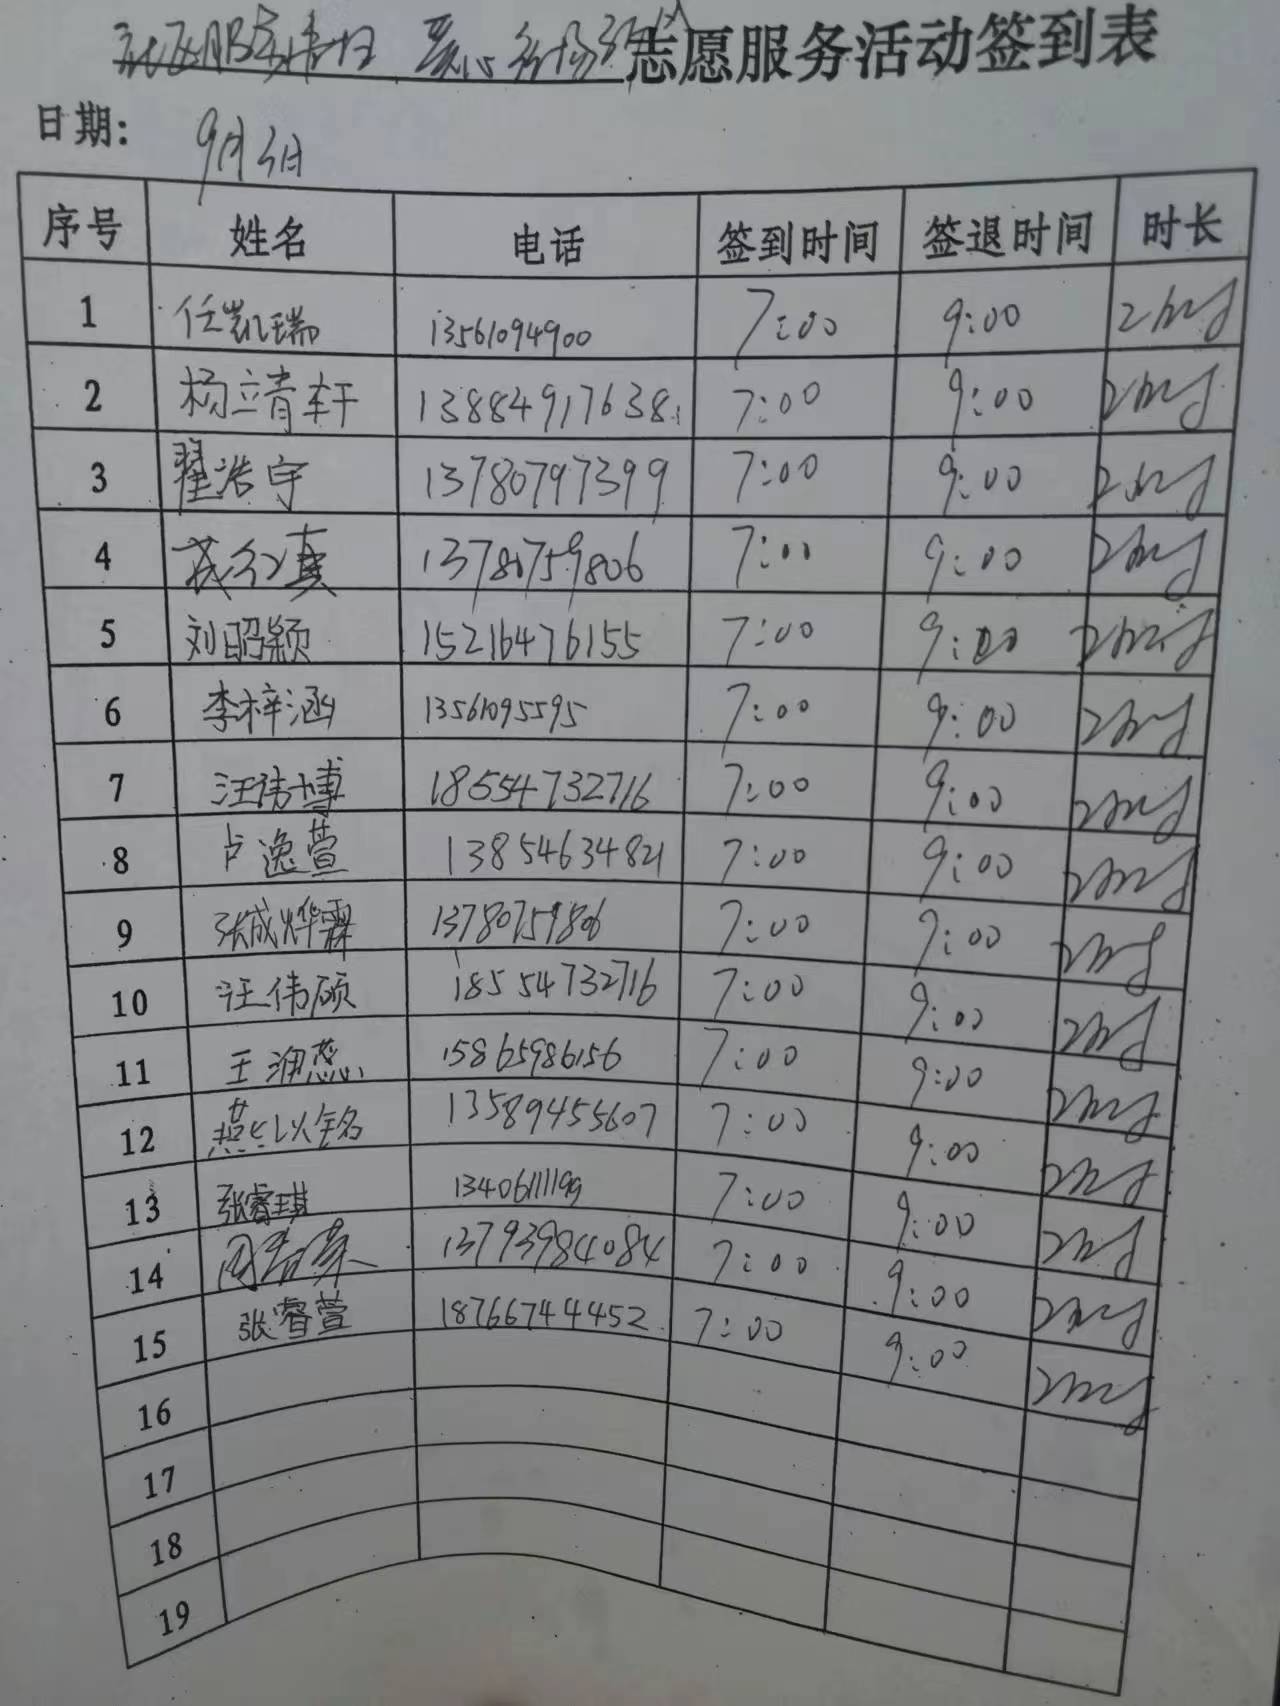 社区服务 爱心 志愿服务活动签到表
日期: 9月3日
序号 姓名 电话 签到时间 签退时间 时长
1 任凯瑞 13561094900 7:00 9:00 2
2 杨立青轩 13884917638 7:00 9:00 2
3 翟浩宇 13780797399 7:00 9:00 2
4 13780759806 7:00 9:00 2
5 刘昭颖 15216476155 7:00 9:00 2
6 李梓涵 13561095595 7:00 9:00 2
7 汪伟博 18554732716 7:00 9:00 2
8 卢逸萱 13854634821 7:00 9:00 2
9 张成烨霖 13780759806 7:00 9:00 2
10 汪伟硕 18554732716 7:00 9:00 2
11 王润蕊 15865986156 7:00 9:00 2
12 燕以铭 13589455607 7:00 9:00 2
13 张睿琪 13406111199 7:00 9:00 2
14 13793984084 7:00 9:00 2
15 张睿萱 18766744452 7:00 9:00 2
16
17
18
19